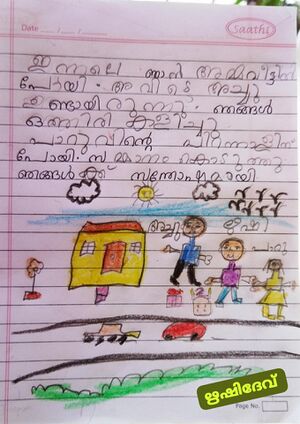 Date ___/___/___
Saathi
ഇന്നലെ ഞാൻ അമ്മവീട്ടിൽ
പോയി. അവിടെ അച്ചു
ഉണ്ടായിരുന്നു. ഞങ്ങൾ
ഒത്തിരി കളിച്ചു.
പാറുവിന്റെ പിറന്നാളിന്
പോയി. സമ്മാനം കൊടുത്തു
ഞങ്ങൾക്ക് സന്തോഷമായി
അച്ചു ഋഷി
പാറു
ഋഷിദേവ്
Page No.